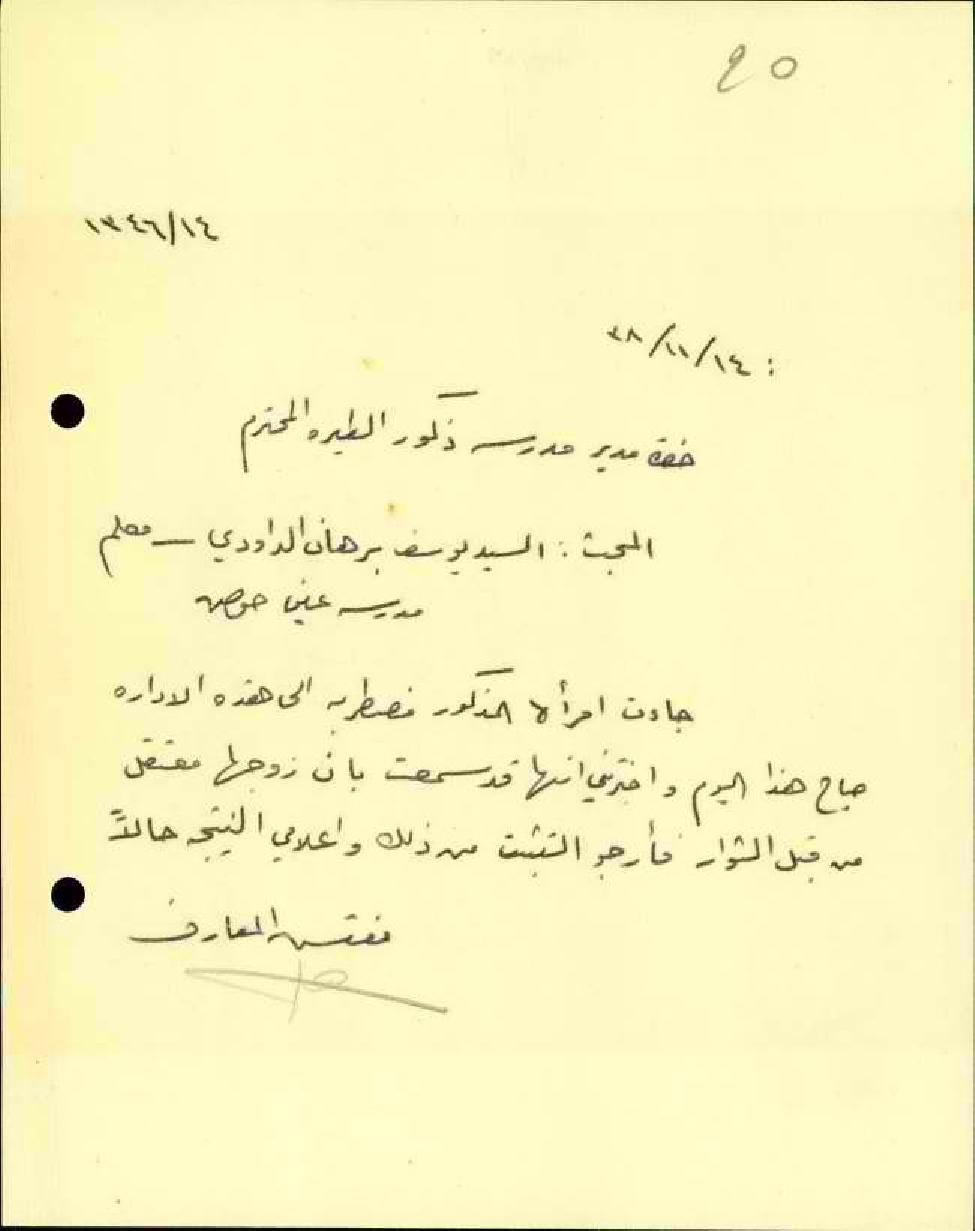 90
١٣٤٦/١٤
: ١٤/١١/٣٨
حضرة مدير مدرسة ذكور الطيره المحترم
المبحث : السيد يوسف برهان الداودي ــ معلم
مدرسه عين حوض
جاءت امرأة المذكور مضطربه الى هذه الاداره
صباح هذا اليوم واخبرتني انها قد سمعت بان زوجها معتقل
من قبل الثوار فأرجو التثبت من ذلك واعلامي النتيجه حالاً
مفتش المعارف